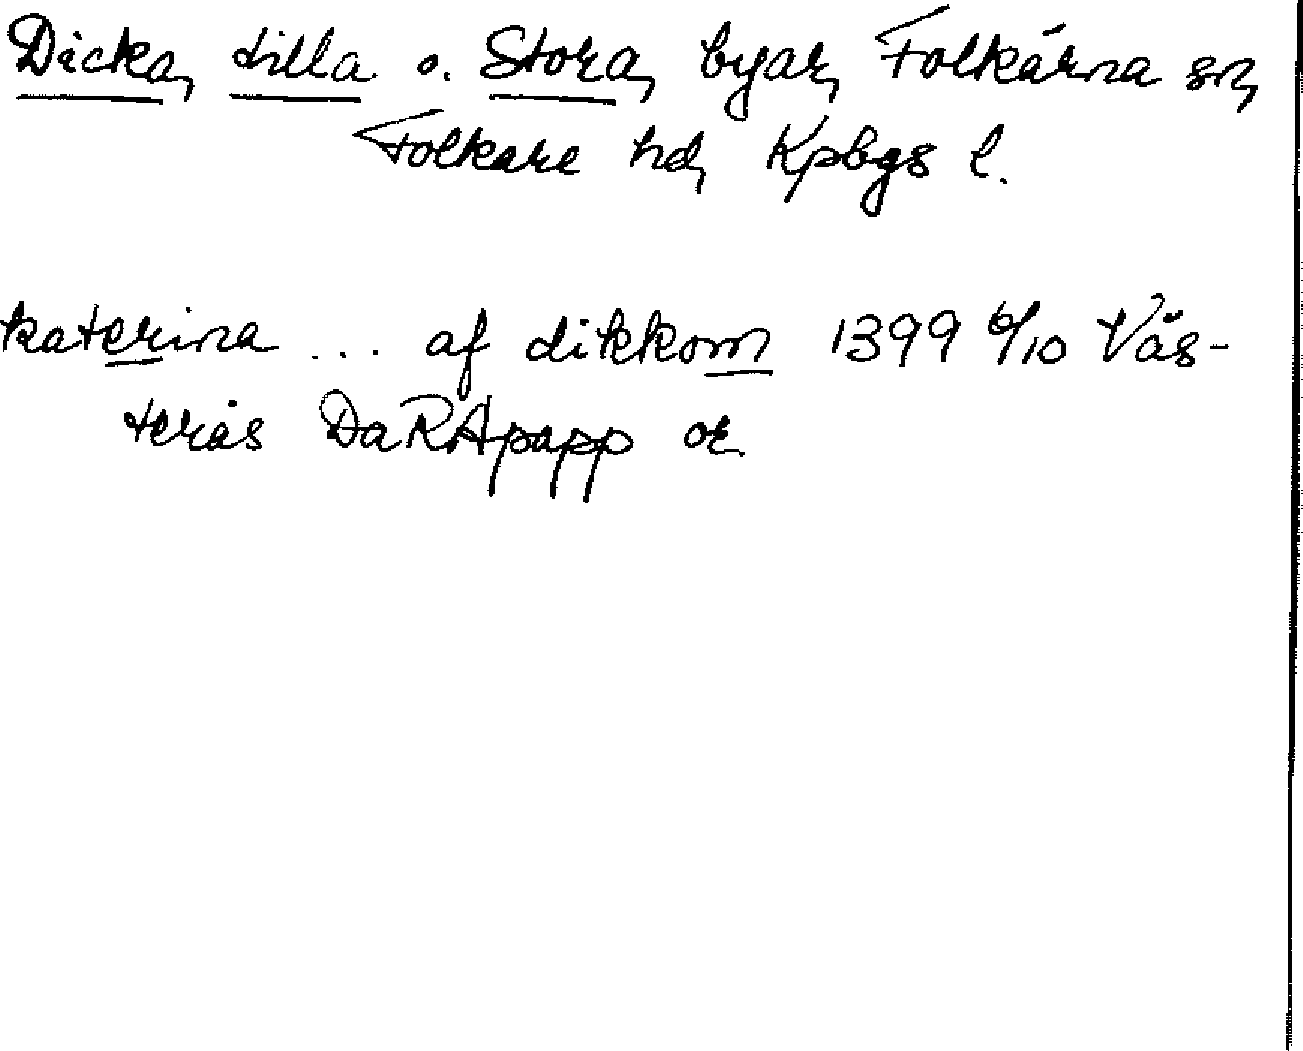 Dicka, Lilla o. Stora, byar, Folkärna sn,
Folkare hd, Kpbgs l.
katerina ... af dikkom 1399 6/10 Väs-
terås DaRApapp or.